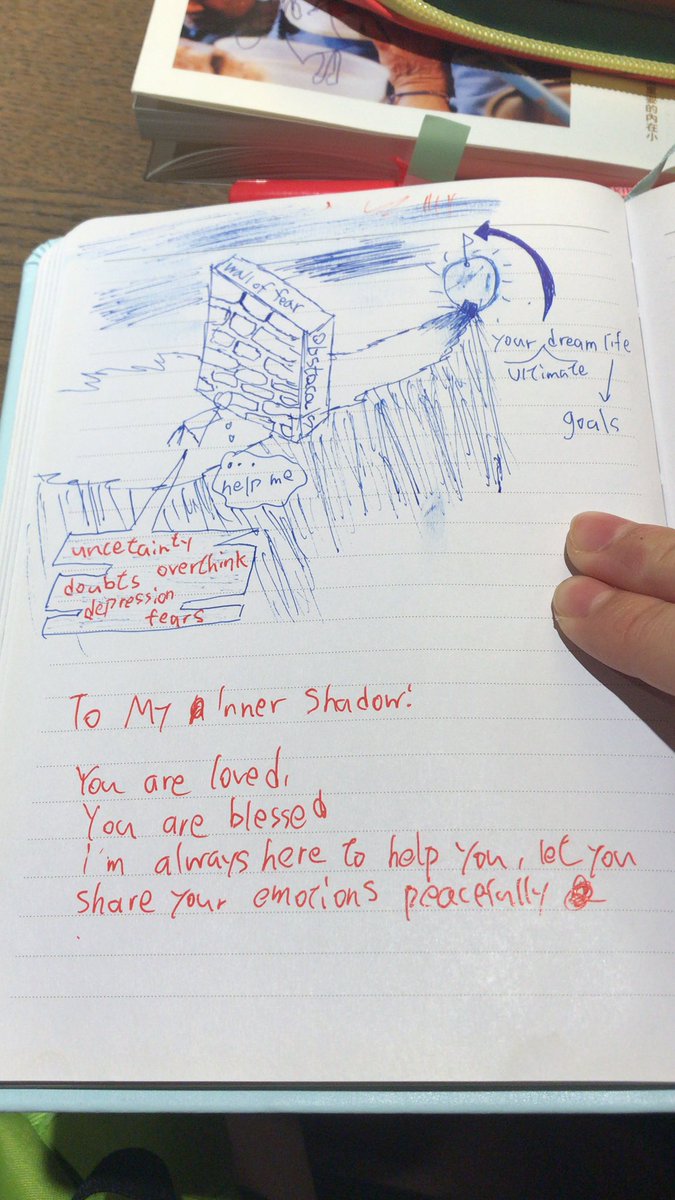 重要的內在小
wall of fear
your dream life
ultimate
goals
help me
uncetainty
doubts overthink
depression
fears
To My Inner Shadow:
You are loved,
You are blessed
i'm always here to help you, let you
share your emotions peacefully